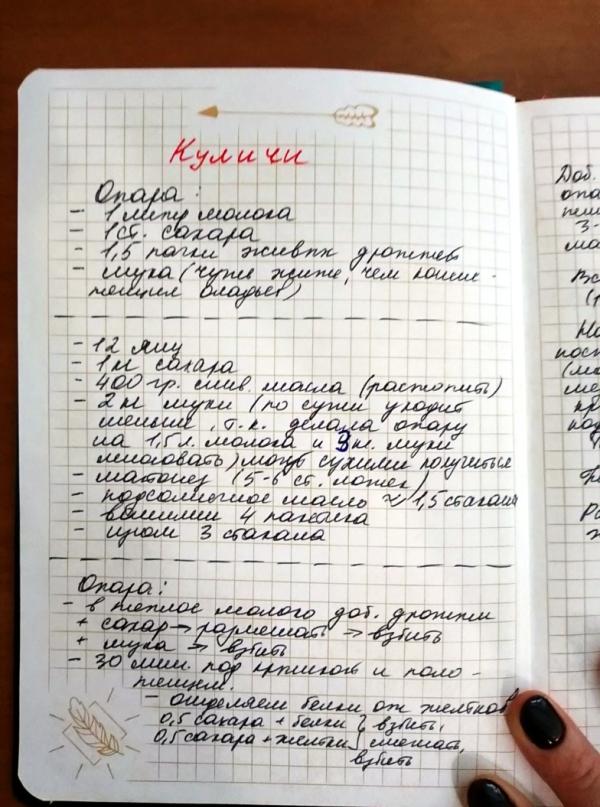 Куличи
Опара:
- 1 литр молока
- 1 ст. сахара
- 1,5 пачки живых дрожжей
- мука (чуть жиже, чем консис-
тенция оладьев)
- 12 яиц
- 1 кг сахара
- 400 гр. слив. масла (растопить)
- 2 кг муки (по сути уходит
меньше, т.к. делала опару
на 1,5 л. молока и 3 кг. муки
многовато) могут сухими получиться
- майонез (5-6 ст. ложек)
- подсолнечное масло ≈ 1,5 стакана
- ванилин 4 пакетика
- изюм 3 стакана
Опара:
- в теплое молоко доб. дрожжи
+ сахар → размешать → взбить
+ мука → взбить
- 30 мин. под крышкой и поло-
тенцем.
- отделяем белки от желтков
0,5 сахара + белки } взбить,
0,5 сахара + желтки } смешать,
взбить
Доб.
опа
3-
ма
Вс
(1
По
пост
(ма